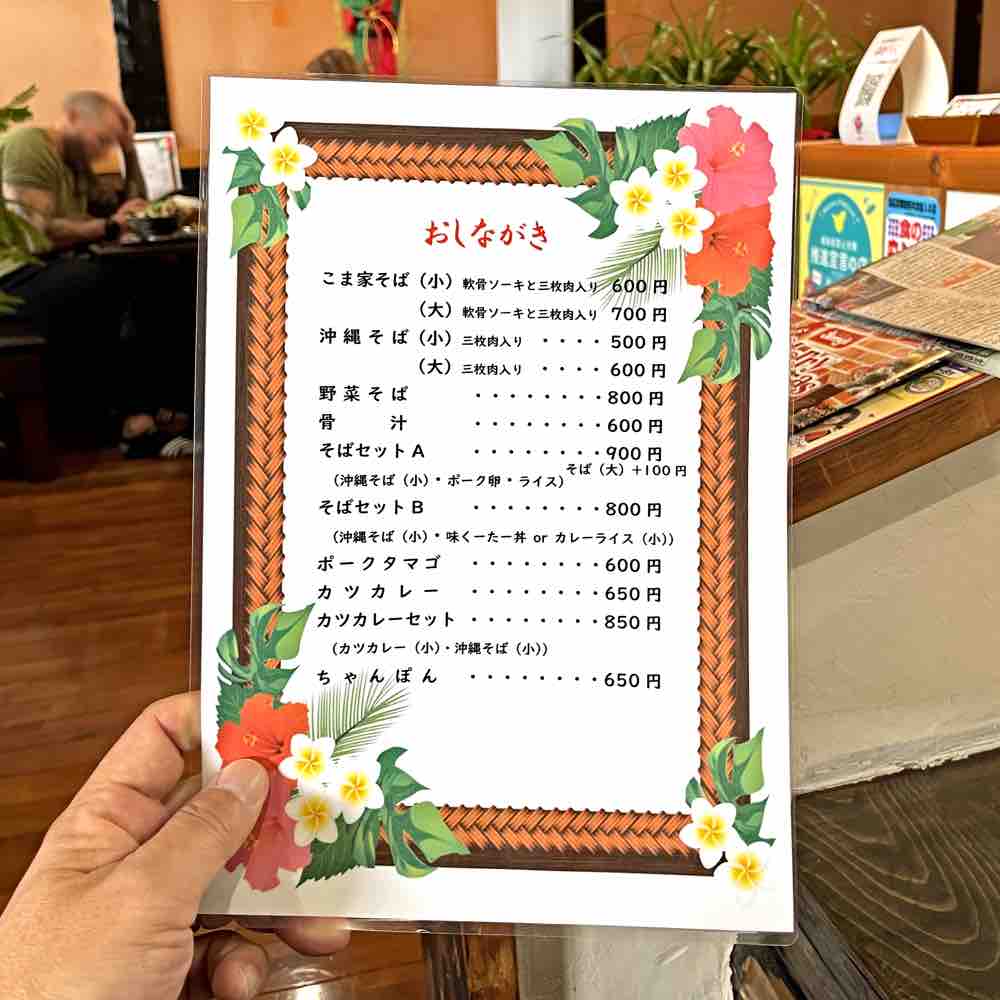 おしながき
こま家そば（小）軟骨ソーキと三枚肉入り 600円
（大）軟骨ソーキと三枚肉入り 700円
沖縄そば（小）三枚肉入り ・・・・ 500円
（大）三枚肉入り ・・・・ 600円
野菜そば ・・・・・・・・ 800円
骨汁 ・・・・・・・・ 600円
そばセットA ・・・・・・・・ 900円
そば（大）+100円
（沖縄そば（小）・ポーク卵・ライス）
そばセットB ・・・・・・・・ 800円
（沖縄そば（小）・味くーたー丼 or カレーライス（小））
ポークタマゴ ・・・・・・・・ 600円
カツカレー ・・・・・・・・ 650円
カツカレーセット ・・・・・・・・ 850円
（カツカレー（小）・沖縄そば（小））
ちゃんぽん ・・・・・・・・ 650円